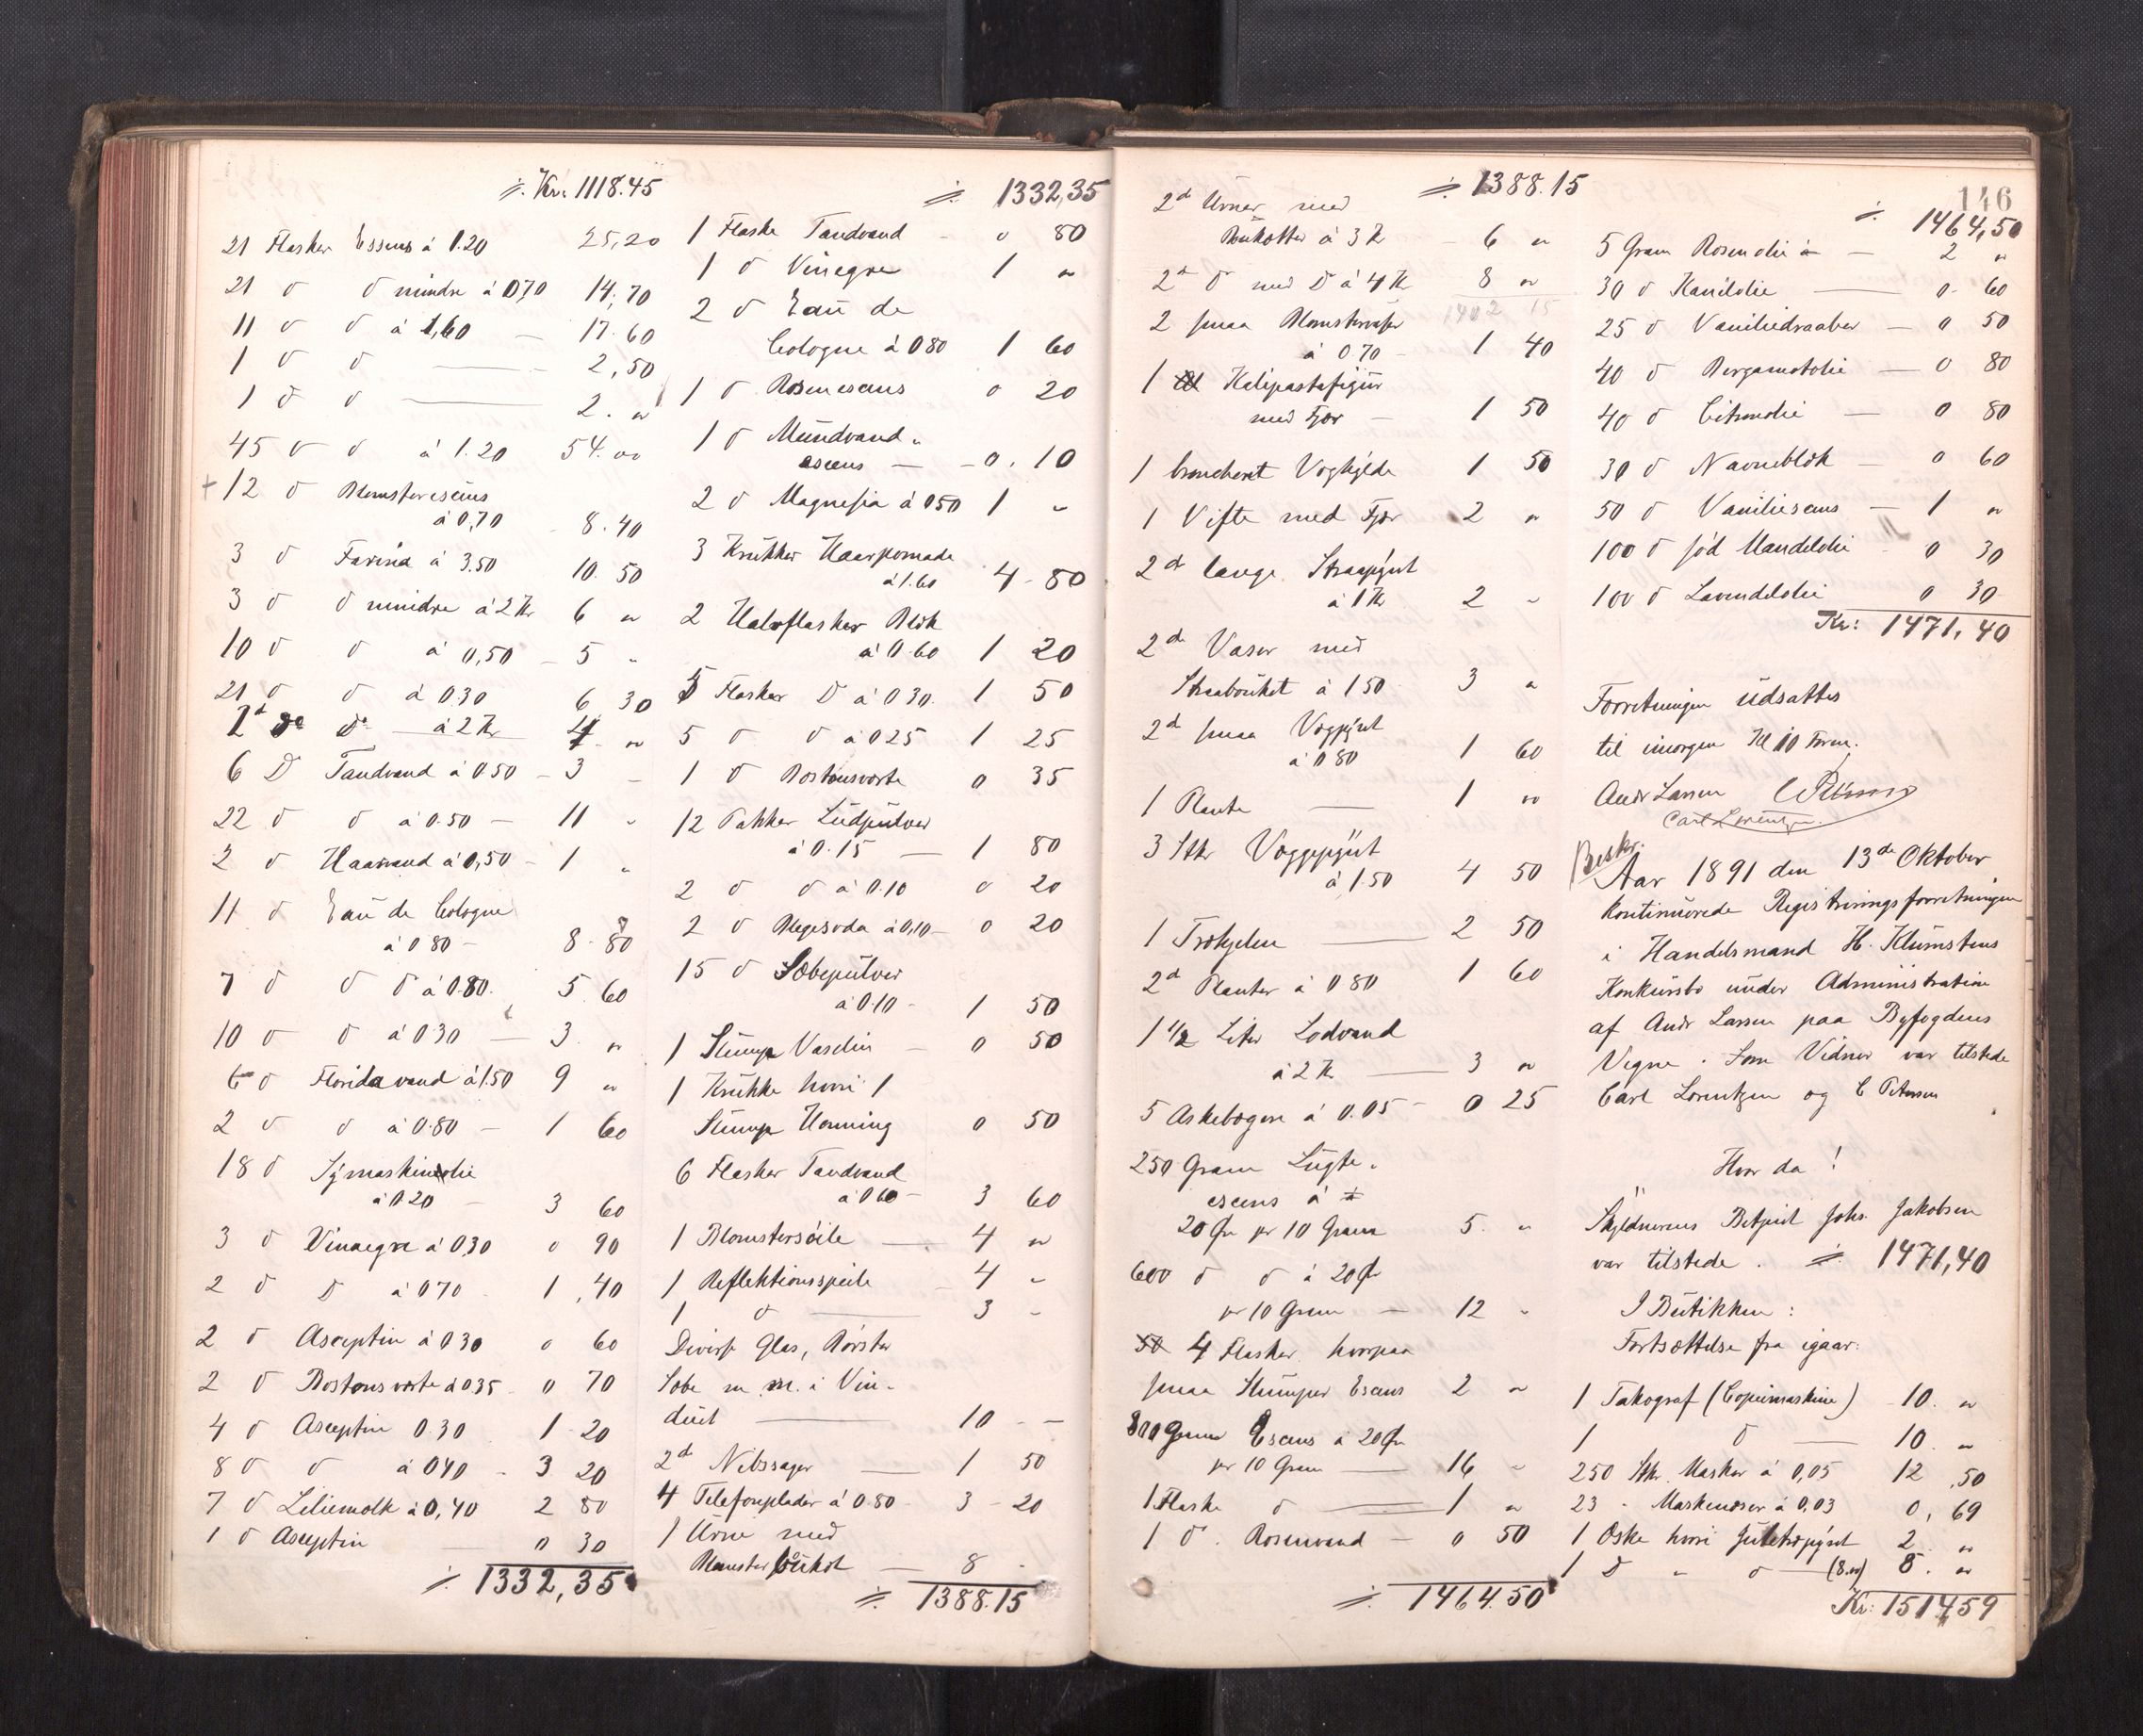 ./. Kr. 1118.45
21 Flasker Essens á 1.20 25,20
21 d d mindre á 0,70 14,70
11 d d á 1,60 — 17.60
1 d d — 2,50
1 d d — 2. "
45 d d á 1.20 54.00
+ 12 d Blomsteresens
á 0,70 8.40
3 d Farina á 3.50 10.50
3 d d mindre á 2 Kr 6 "
10 d d á 0,50 — 5 "
21 d d á 0.30 6 30
2d do do — á 2 Kr 4. "
6 D Tandvand á 0.50 — 3 —
22 d d á 0.50 — 11 "
2 d Haarvand á 0,50 — 1 "
11 d Eau de Cologne
á 0 80 — 8.80
7 d d d á 0.80. 5 60
10 d d á 0.30 — 3. "
6 d Florida vand á 1.50 9 "
2 d d á 0.80 — 1 60
18 d Symaskinolie
á 0.20 — 3 60
3 d Vinaegre á 0,30 0 90
2 d D á 0 70 1,40
2 d Aseptin á 0 30 0 60
2 d Bostons vorte á 0 35 0 70
4 d Aseptin 0.30 1 20
8 d d á 0 40 — 3 20
7 d Liliemelk á 0,40 2 80
1 d Aseptin — 0 30
./. 1332,35
./. 1332,35
1 Flaske Tandvand — 0 80
1 d Vinegre 1 "
2 d Eau de
Cologne á 0 80 1 60
1 d Rosenesens 0 20
1 d Mundvand-
esens — 0.10
2 d Magnesia á 0 50 1 "
3 Krukker Haarpomade
á 1.60 4 80
2 Halvflasker Blæk
á 0.60 1 20
5 Flasker D á 0 30. 1 50
5 d d á 0 25 1 25
1 d Bostonsvorte 0 35
12 Pakker Ludpulver
á 0.15 — 1 80
2 d d á 0.10 0 20
2 d Blegesoda á 0,10 — 0 20
15 d Sæbepulver
á 0.10 — 1 50
1 Stump Vaselin — 0 50
1 Krukke hvori 1
Stump Honning 0 50
6 Flasker Tandvand
á 0 60 — 3 60
1 Blomstersøile — 4 "
1 Reflektionsspeile 4 "
1 d — 3 "
Divirse Glas, Børster
Sæbe m. m. i Vin-
duet — 10 —
2d Nibssager — 1 50
4 Telefonplader á 0.80 3 20
1 Urne med
Blomsterbuket — 8 —
./. 1388.15
./. 1388.15
2d Urner med
Buketter á 3 K — 6 "
2d d med D á 4 Kr 8 "
1402 15
2 smaa Blomstervaser
á 0.70 — 1 40
1 Kalipastafigur
med Fjær — 1 50
1 broncheret Voghylde 1 50
1 Vifte med Fjær 2 "
2d lange Straapynt
á 1 Kr 2 "
2d Vaser med
Straabouket á 1 50 3 "
2d smaa Vægpynt
á 0 80 1 60
1 Plante — 1 "
3 Stk Væggepynt
á 1.50 4 50
1 — 2 50
2d Planter á 0 80 1 60
1 1/2 Liter Lodvand
á 2 Kr — 3 "
5 Askebægere á 0.05 — 0 25
250 Gram Lugte-
esens á
20 Ør pr 10 Gram 5. "
600 d d á 20 Ør
pr 10 Gram — 12 "
4 Flasker hvorpaa
smaa Stumper Esens 2 "
800 Gram Esens á 20 Ør
pr 10 Gram — 16 "
1 Flaske d — 1 "
1 d Rosenvand — 0 50
./. 1464.50
146
./. 1464,50
5 Gram Rosenolie á — 2 "
30 d Kanilolie — 0 60
25 d Vaniliedraaber — 0 50
40 d Bergamotolie — 0 80
40 d Citronolie — 0 80
30 d Navneblæk — 0 60
50 d Vaniliesens — 1 "
100 d sød Mandelolie 0 30
100 d Lavendelolie 0 30
Kr: 1471,40
Forretningen udsattes
til imorgen Kl 10 Form.
Andr Larsen
Carl Lorentzen
Beskr.
Aar 1891 den 13de Oktober
kontinuerede Registreringsforretningen
i Handelsmand H. Klumstens
Konkursbo under Administration
af Andr Larsen paa Byfogdens
Vegne. Som Vidner var tilstede
Carl Lorentzen og C Petersen
Hvor da!
Skyldnerens Betjent Johs. Jakobsen
var tilstede. ./. 1471,40
I Butikken:
Fortsættelse fra igaar:
1 Takograf (Copiemaskine) 10. "
1 d — 10. "
250 Stk. Masker á 0,05 12,50
23 " Maskenæser á 0,03 0,69
1 Æske hvori Juletræpynt 2. "
1 D " d — (8.00) 8. "
Kr: 1514,59